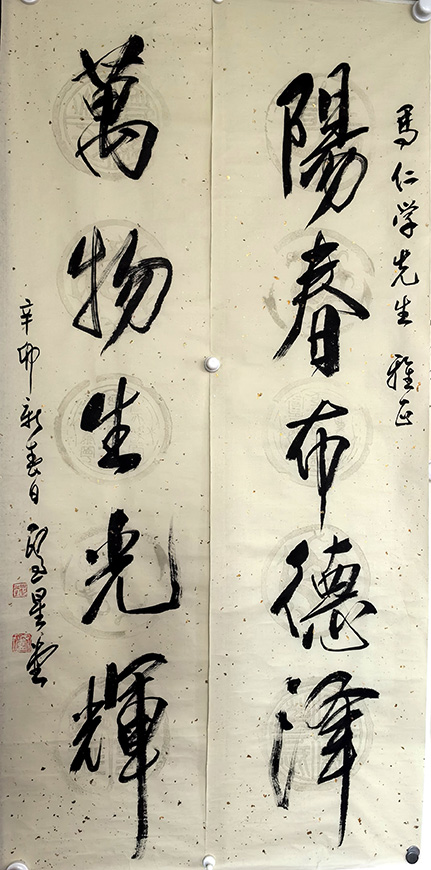 馬仁学先生 雅正
陽春布德澤
萬物生光輝
辛卯新春日
星